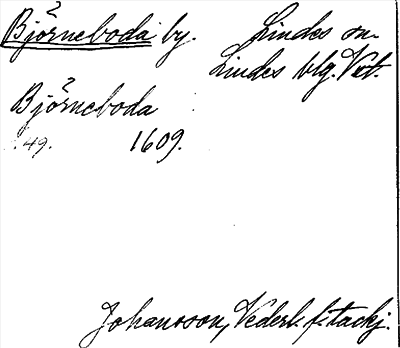 Björneboda by. Lindes sn.
Lindes blg. Vstm.
Björneboda
:49. 1609.
Johansson, Vederl. f. tackj.